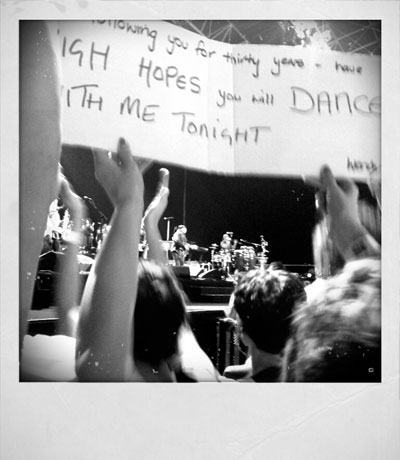 following you for thirty years - have
HIGH HOPES you will DANCE
WITH ME TONIGHT